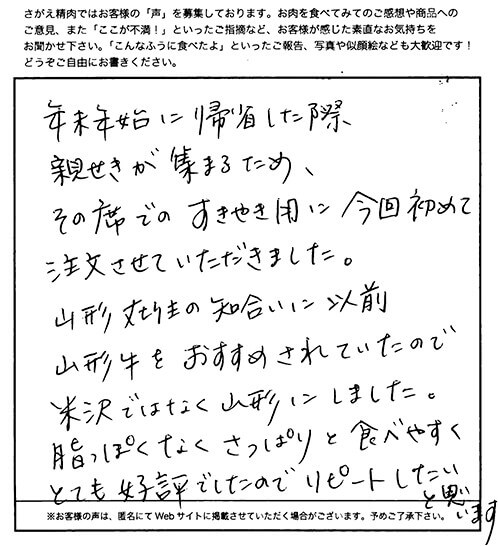 さがえ精肉ではお客様の「声」を募集しております。お肉を食べてみてのご感想や商品への
ご意見、また「ここが不満！」といったご指摘など、お客様が感じた素直なお気持ちを
お聞かせ下さい。「こんなふうに食べたよ」といったご報告、写真や似顔絵なども大歓迎です！
どうぞご自由にお書きください。
年末年始に帰省した際
親せきが集まるため、
その席でのすきやき用に今回初めて
注文させていただきました。
山形の知合いに以前
山形牛をおすすめされていたので
米沢ではなく山形にしました。
脂っぽくなくさっぱりと食べやすく
とても好評でしたのでリピートしたい
と思います
※お客様の声は、匿名にてWebサイトに掲載させていただく場合がございます。予めご了承下さい。